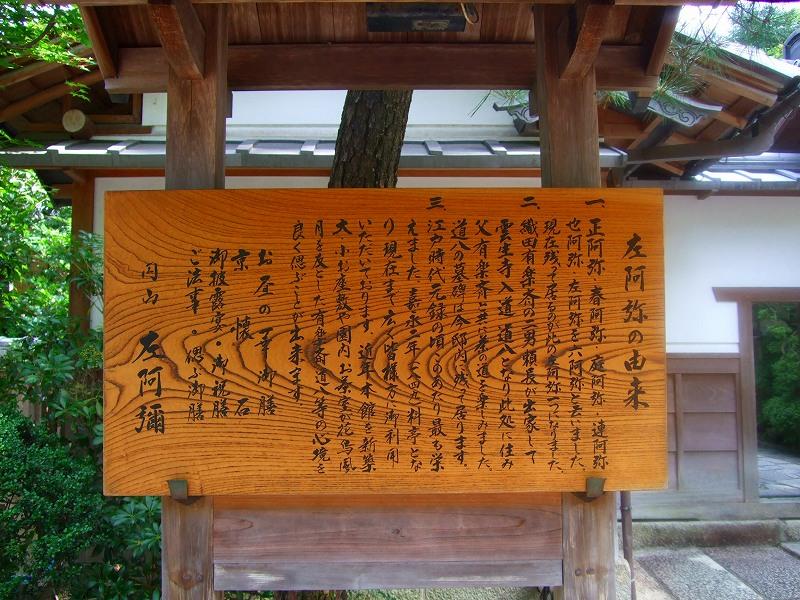 左阿弥の由来
一、正阿弥、春阿弥、庭阿弥、連阿弥
也阿弥、左阿弥を六阿弥と云いました、
現在残って居るのが此の左阿弥一つになりました、
二、織田有楽斎の二男頼長が出家して
雲生寺入道道八となり此処に住み
父有楽斎と共に茶の道を楽しみました、
道八の墓碑は今邸内に残って居ります。
三、江戸時代元禄の頃このあたり最も栄
えました嘉永二年(一八四九)料亭とな
り現在まで広く皆様方の御利用
いただいております。近年本館を新築
大、小お座敷や園内お茶室が花鳥風
月を友とした有楽斎道八等の心境を
良く偲ぶことが出来ます。
お昼の御膳
京懐石
御披露宴・御祝膳
ご法事・偲ぶ御膳
円山 左阿彌